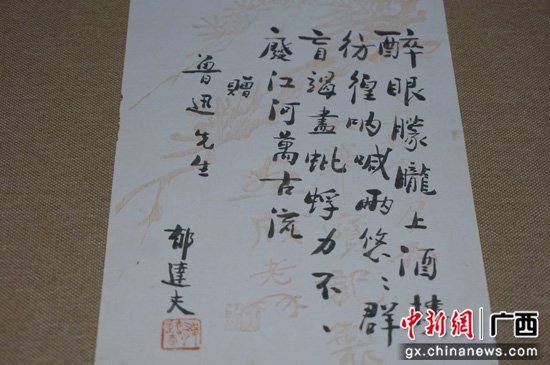 醉眼朦朧上酒樓
彷徨吶喊兩悠〻群
盲竭盡蚍蜉力不、
廢江河萬古流
贈
魯迅先生
郁達夫
中新网 广西
gx.chinanews.com.cn